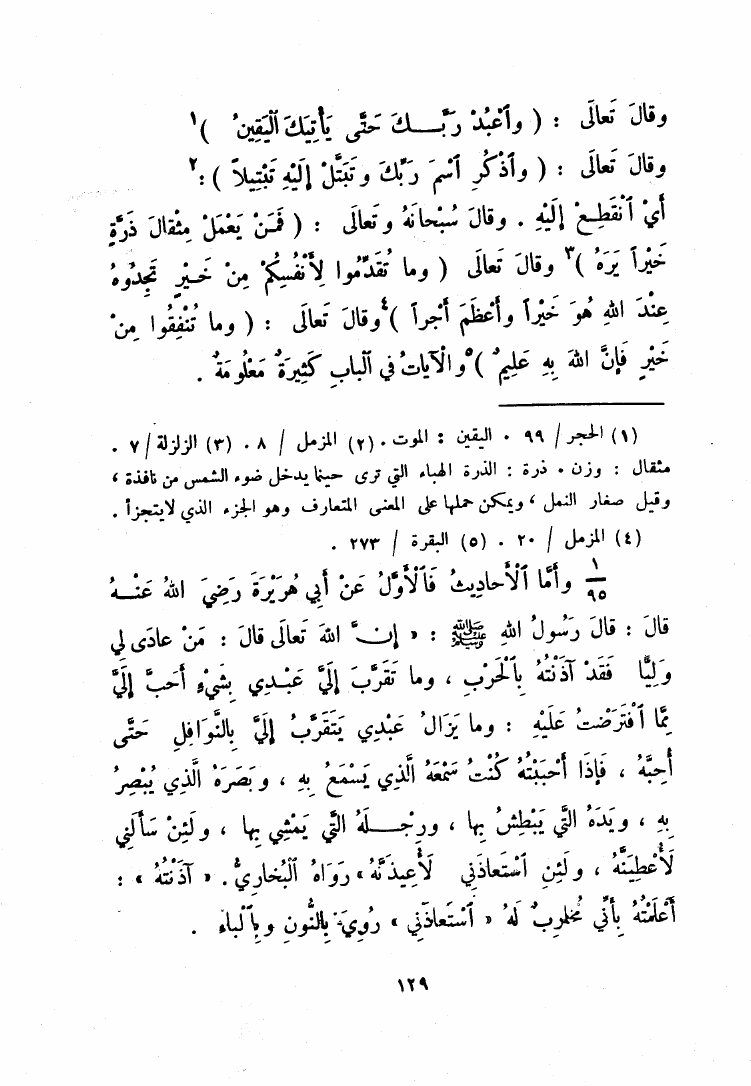 وقالَ تَعالَى : ( وٱعْبُدْ رَبَّـــكَ حَتَّى يَأْتِيَكَ ٱلْيَقِينُ )١
وقالَ تَعالَى : ( وٱذْكُرِ ٱسْمَ رَبِّكَ وتَبَتَّلْ إلَيْهِ تَبْتِيلاً ) :٢
أَيْ ٱنْقَطِعْ إلَيْهِ . وقالَ سُبْحانَهُ وتَعالَى : ( فَمَنْ يَعْمَلْ مِثْقالَ ذَرَّةٍ
خَيْراً يَرَهُ )٣ وقالَ تَعالَى ( وما تُقَدِّمُوا لِأَنْفُسِكُمْ مِنْ خَيْرٍ تَجِدُوهُ
عِنْدَ اللهِ هُوَ خَيْراً وأَعْظَمَ أَجْراً )٤ وقالَ تَعالَى : ( وما تُنْفِقُوا مِنْ
خَيْرٍ فَإنَّ اللهَ بِهِ عَلِيمٌ )٥ والْآياتُ في ٱلْبابِ كَثِيرَةٌ مَعْلُومَةٌ .
(١) الحجر / ٩٩ . اليقين : الموت . (٢) المزمل / ٨ . (٣) الزلزلة / ٧ .
مثقال : وزن . ذرة : الذرة الهباء التي ترى حينما يدخل ضوء الشمس من نافذة ،
وقيل صغار النمل ، ويمكن حملها على المعنى المتعارف وهو الجزء الذي لايتجزأ .
(٤) المزمل / ٢٠ . (٥) البقرة / ٢٧٣ .
١/٩٥ وأَمَّا ٱلْأَحادِيثُ فَٱلْأَوَّلُ عَنْ أَبي هُرَيْرَةَ رَضِيَ اللهُ عَنْـــهُ
قالَ : قالَ رَسُولُ اللهِ ﷺ : « إنَّ اللهَ تَعالَى قالَ : مَنْ عادَى لِي
وَلِيًّا فَقَدْ آذَنْتُهُ بِٱلْحَرْبِ ، وما تَقَرَّبَ إلَيَّ عَبْدِي بِشَيْءٍ أَحَبَّ إلَيَّ
مِمَّا ٱفْتَرَضْتُ عَلَيْهِ : وما يَزالُ عَبْدِي يَتَقَرَّبُ إلَيَّ بِالنَّوَافِلِ حَتَّى
أُحِبَّهُ ، فَإذَا أَحْبَبْتُهُ كُنْتُ سَمْعَهُ الَّذِي يَسْمَعُ بِهِ ، وبَصَرَهُ الَّذِي يُبْصِرُ
بِهِ ، ويَدَهُ الَّتِي يَبْطِشُ بِها ، ورِجْـــلَهُ الَّتِي يَمْشِي بِها ، ولَئِنْ سَأَلَنِي
لَأُعْطِيَنَّهُ ، ولَئِنِ ٱسْتَعاذَنِي لَأُعِيذَنَّهُ » رَوَاهُ ٱلْبُخارِيُّ . « آذَنْتُهُ » :
أَعْلَمْتُهُ بِأَنِّي مُحارِبٌ لَهُ « ٱسْتَعاذَنِي » رُوِيَ بِالنُّونِ وبِٱلْباءِ .
١٢٩